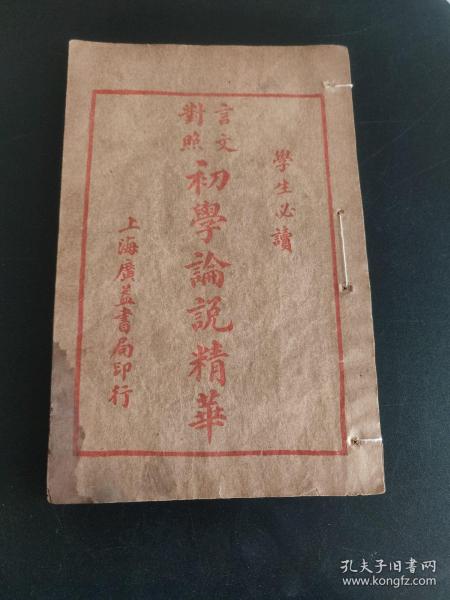 學生必讀
言文
對照
初學論説精華
上海廣益書局印行
孔夫子旧书网
www.kongfz.com